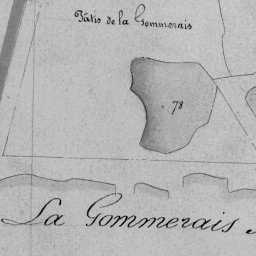 Pâtis de la Gommerais
78
La Gommerais